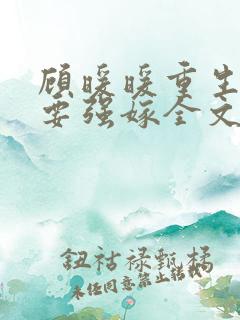 顾暖暖重生
要强嫁全文
钮祜禄甄橘
未经同意禁止转载